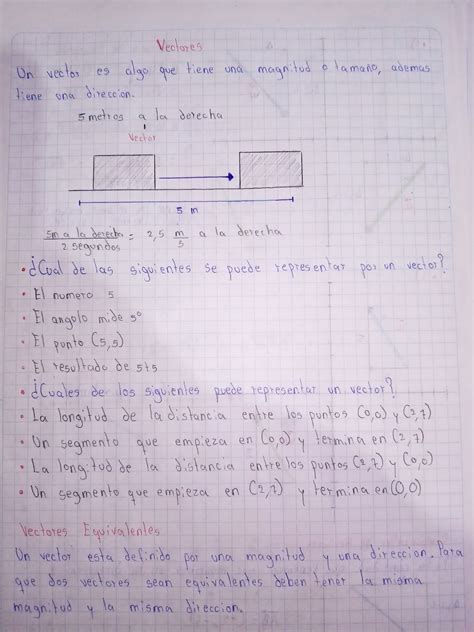 Vectores
Un vector es algo que tiene una magnitud o tamaño, ademas
tiene una direccion.
5 metros a la derecha
Vector
5 m
5m a la derecha = 2,5 m a la derecha
2 segundos s
• ¿Cual de las siguientes se puede representar por un vector?
• El numero 5
• El angolo mide 5º
• El punto (5,5)
• El resultado de 5+5
• ¿Cuales de los siguientes puede representar un vector?
• La longitud de la distancia entre los puntos (0,0) y (2,7)
• Un segmento que empieza en (0,0) y termina en (2,7)
• La longitud de la distancia entre los puntos (2,7) y (0,0)
• Un segmento que empieza en (2,7) y termina en (0,0)
Vectores Equivalentes
Un vector esta definido por una magnitud y una direccion. Para
que dos vectores sean equivalentes deben tener la misma
magnitud y la misma direccion.